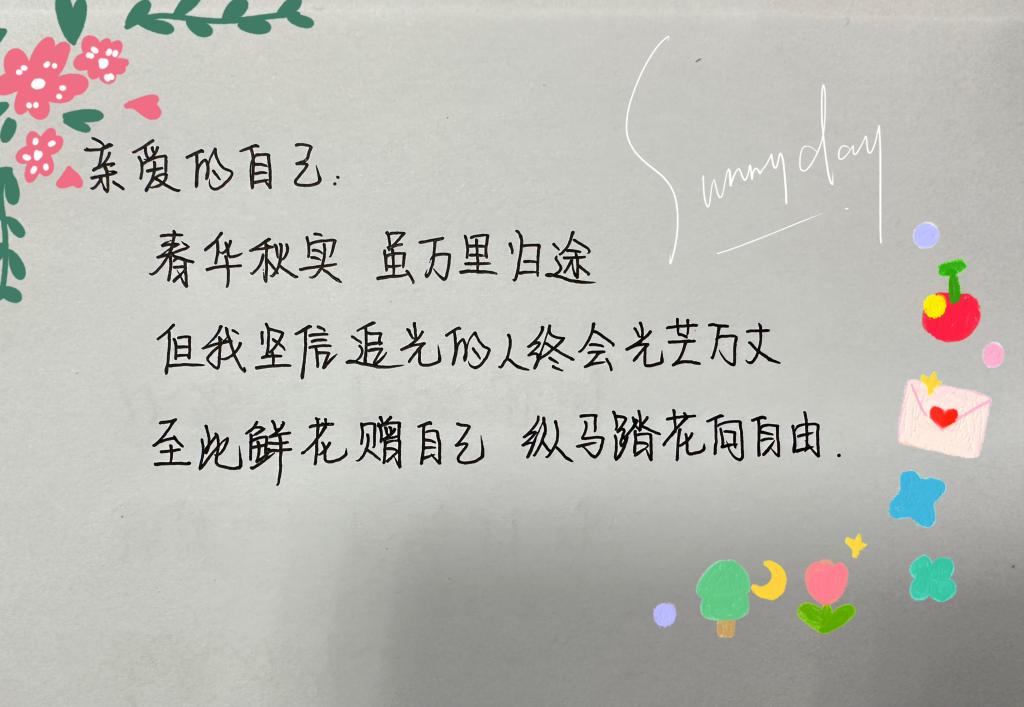 亲爱的自己:
Sunny day
春华秋实 虽万里归途
但我坚信追光的人终会光芒万丈
至此鲜花赠自己 纵马踏花向自由.